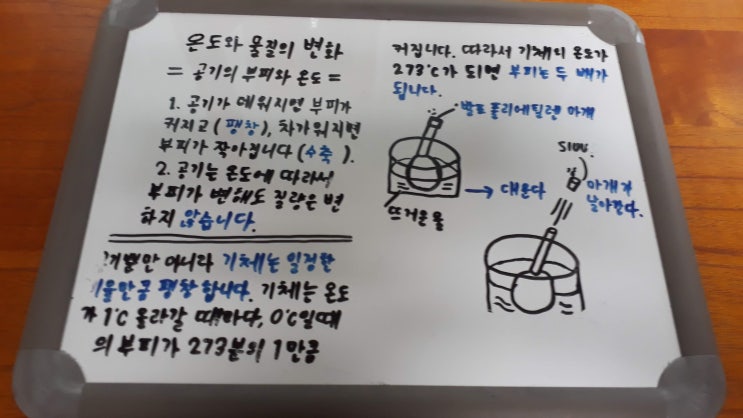 온도와 물질의 변화
= 공기의 부피와 온도 =
1. 공기가 데워지면 부피가
커지고 (팽창), 차가워지면
부피가 작아집니다 (수축).
2. 공기는 온도에 따라서
부피가 변해도 질량은 변
하지 않습니다.
아니라 기체는 일정한
팽창합니다. 기체는 온도
가 1℃ 올라갈 때마다, 0℃일때
의 부피가 273분의 1만큼
커집니다. 따라서 기체의 온도가
273℃가 되면 부피는 두 배가
됩니다.
발포 폴리에틸렌 마개
뜨거운 물
→ 데운다
마개가
날아간다.